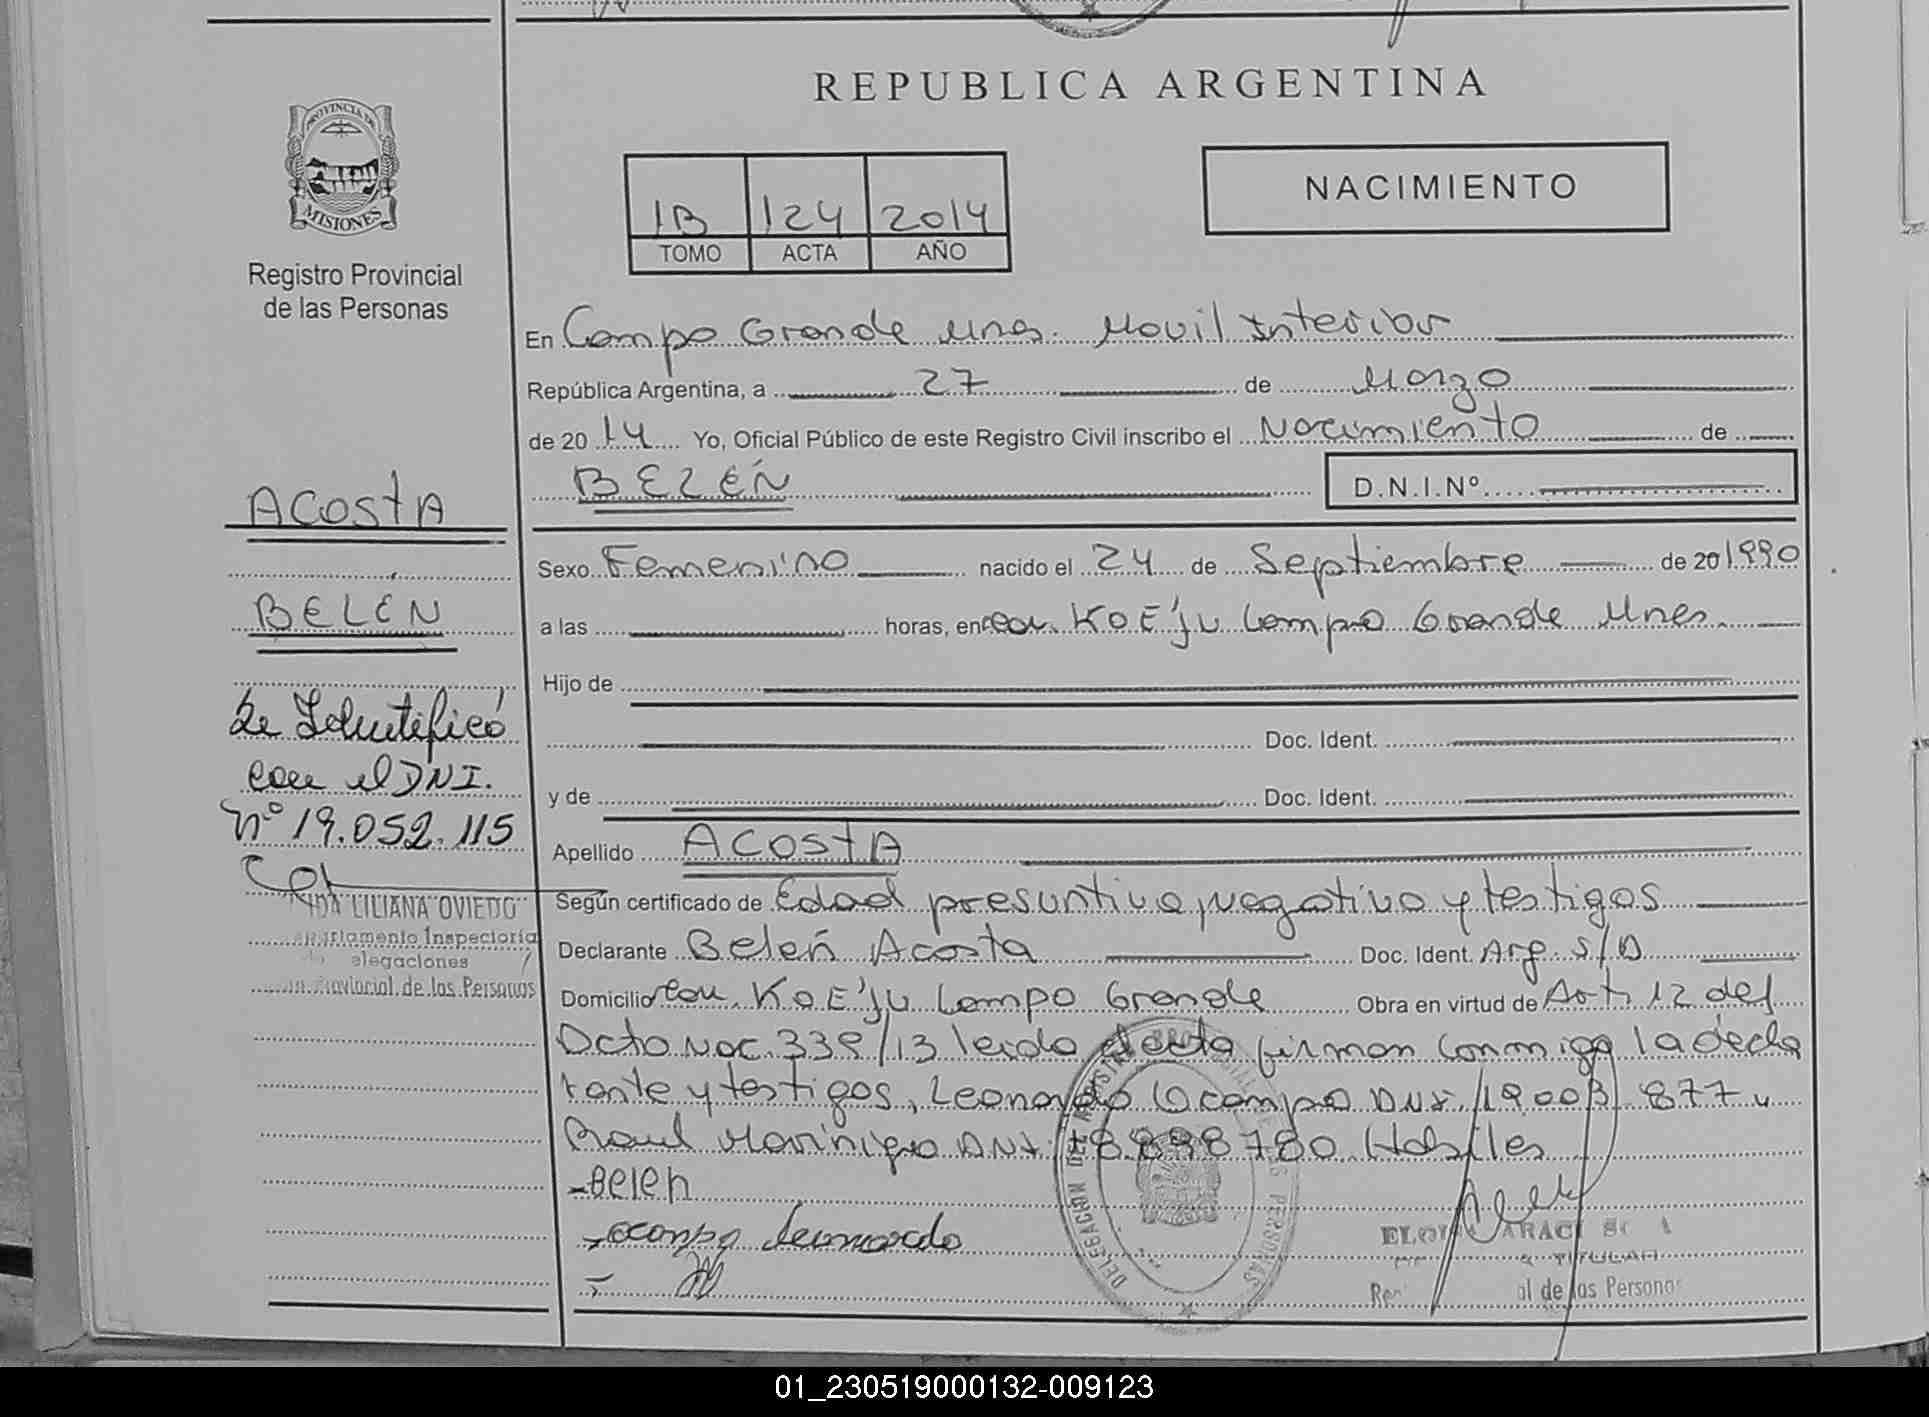 REPUBLICA ARGENTINA
PROVINCIA DE
MISIONES
Registro Provincial
de las Personas
1B 124 2014
TOMO ACTA AÑO
NACIMIENTO
En Campo Grande Mnes. Movil Interior
República Argentina, a 27 de Marzo
de 20 14 Yo, Oficial Público de este Registro Civil inscribo el Nacimiento de
BELÉN D.N.I.Nº
ACOSTA
BELEN
Se Identificó
con el DNI.
Nº 19.052.115
LILIANA OVIEDO
Inspectoria
de las Personas
Sexo Femenino nacido el 24 de Septiembre de 20 1990
a las horas, en Com. KOE'JU Campo Grande Mnes.
Hijo de
Doc. Ident.
y de Doc. Ident.
Apellido ACOSTA
Según certificado de Edad presuntiva, negativo y testigos
Declarante Belén Acosta Doc. Ident. Arg. S/D
Domicilio Com. KOE'JU Campo Grande Obra en virtud de Art. 12 del
Dcto Nac. 339/13 leido el acta firman conmigo la decla
rante y testigos, Leonardo Ocampo DNI. 19003.877 y
Raul DNI 18.898780 Habiles
-Belen
-ocampo leonardo
DELEGACION DEL REGISTRO PROVINCIAL DE LAS PERSONAS
TITULAR
al de las Personas
01_230519000132-009123